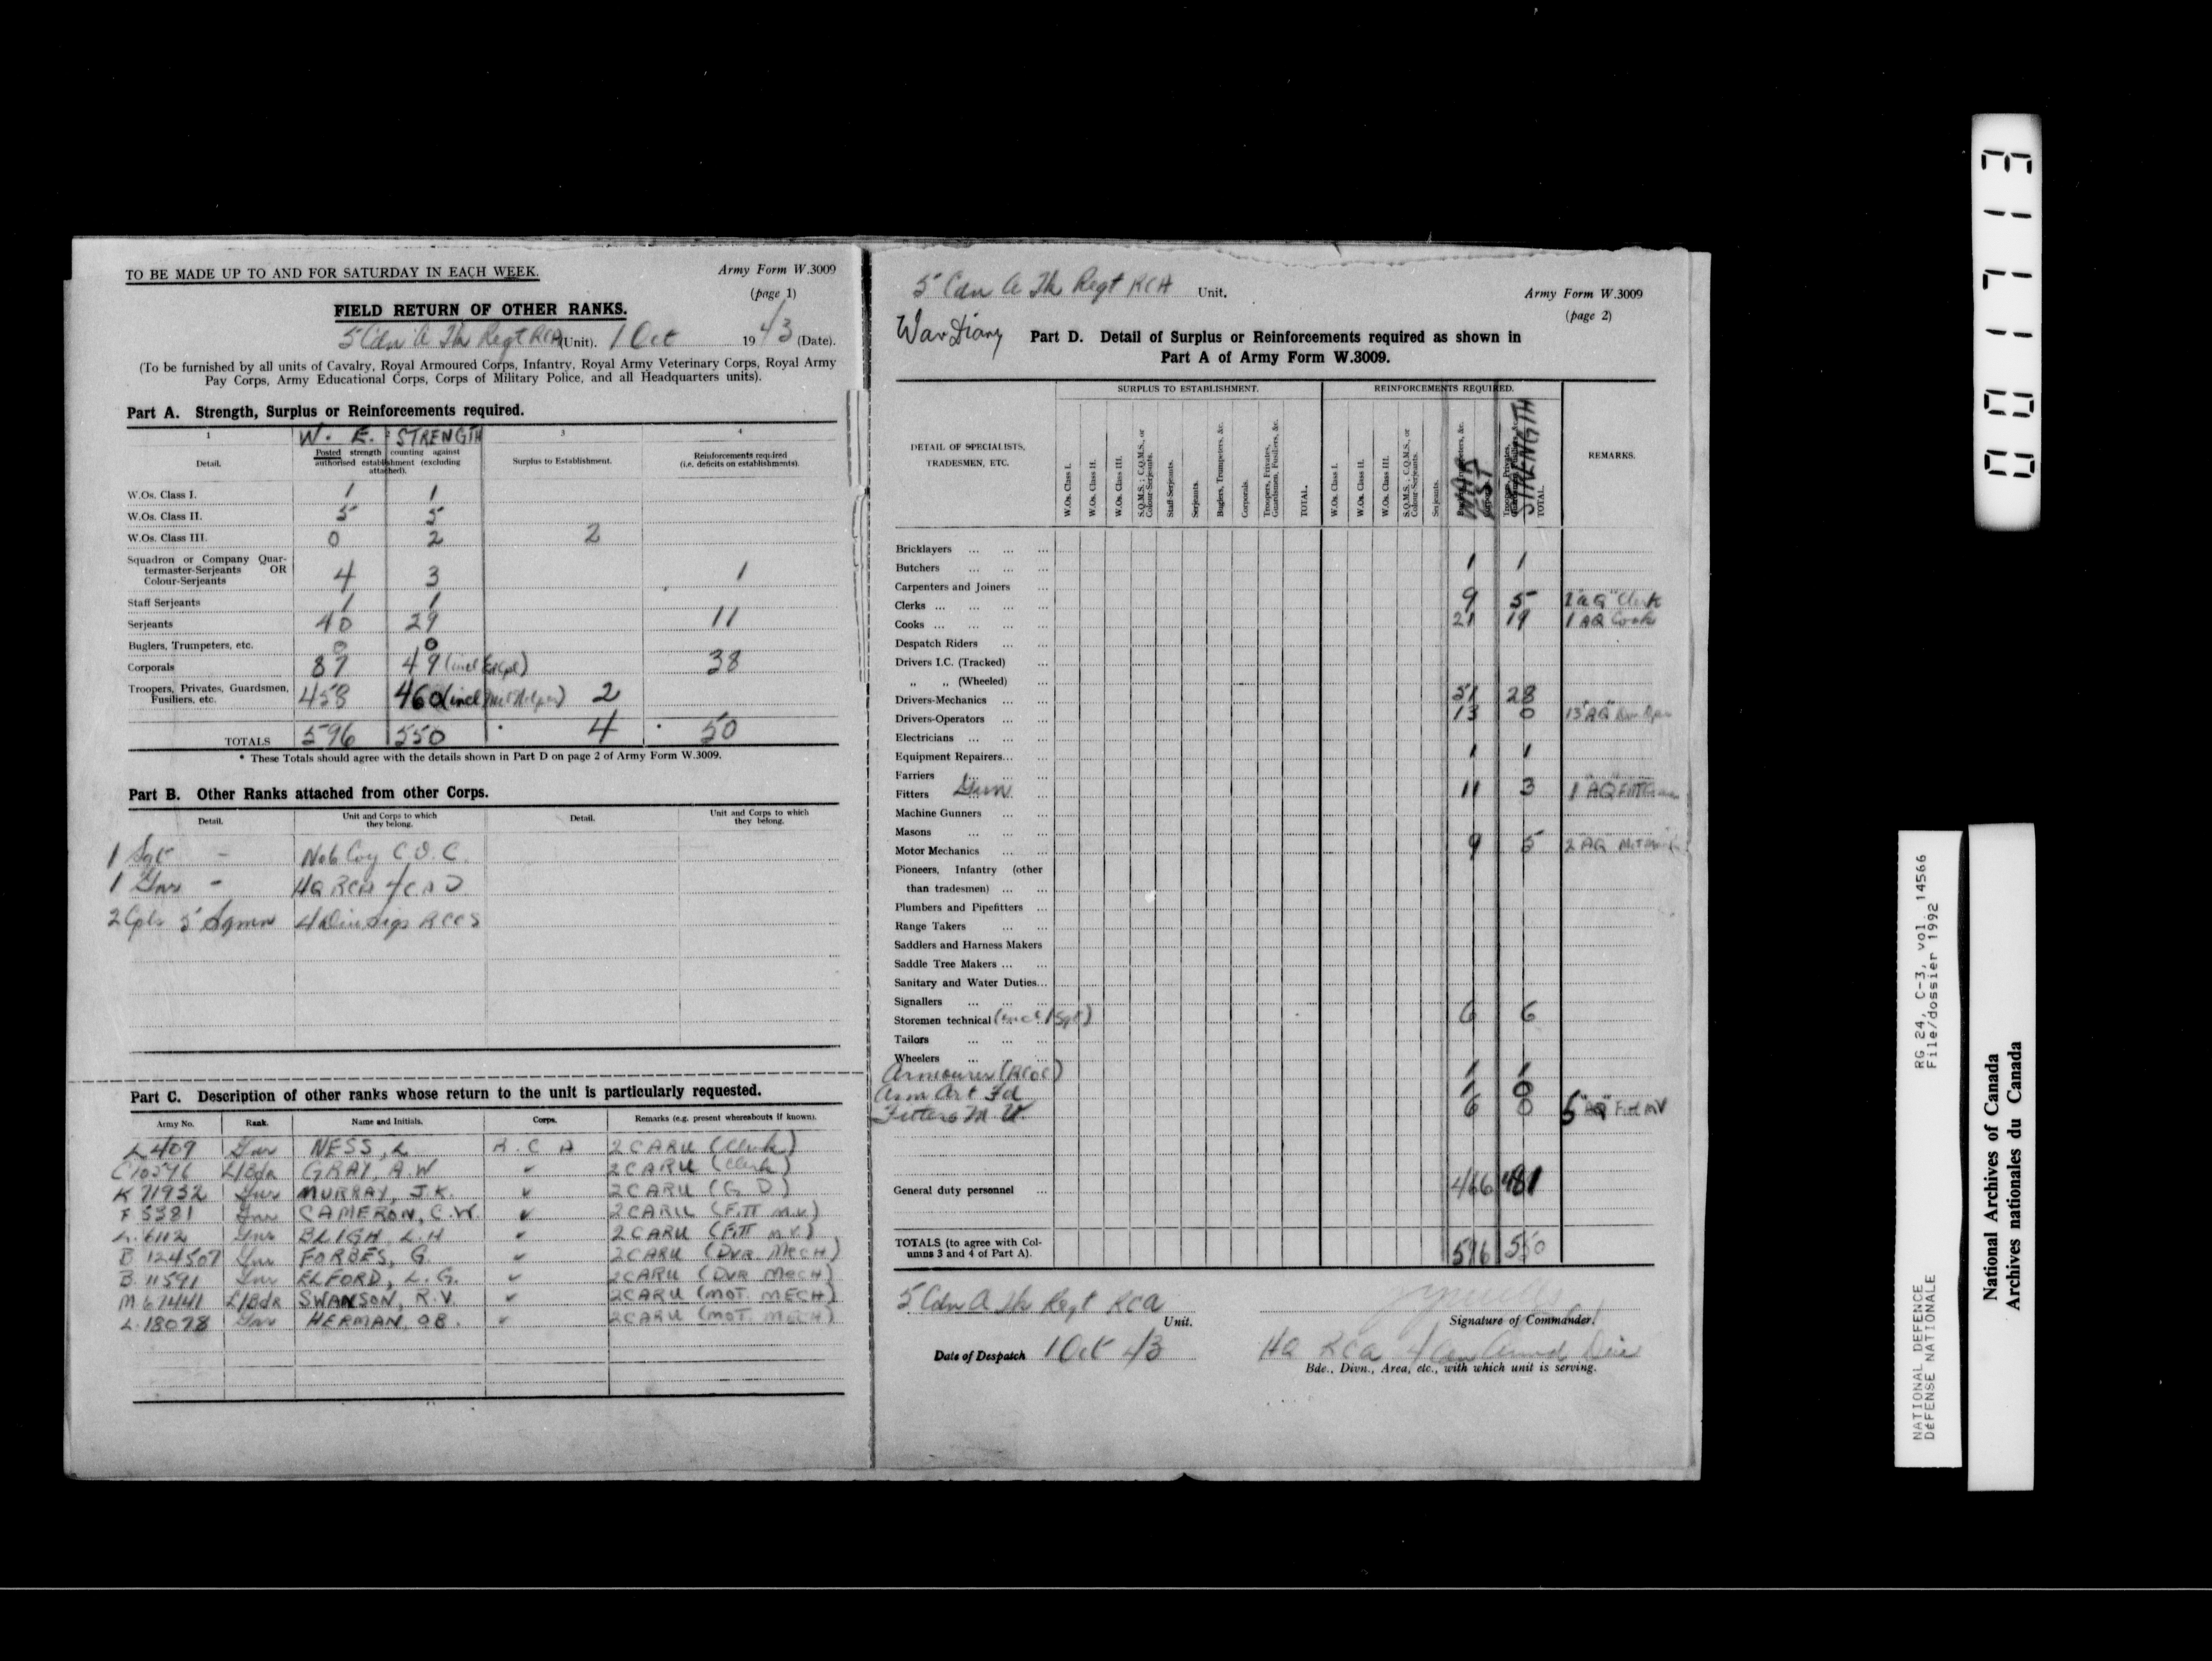 TO BE MADE UP TO AND FOR SATURDAY IN EACH WEEK.
Army Form W.3009
(page 1)
FIELD RETURN OF OTHER RANKS.
5 Cdn A Tk Regt RCA (Unit). 1 Oct 1943 (Date).
(To be furnished by all units of Cavalry, Royal Armoured Corps, Infantry, Royal Army Veterinary Corps, Royal Army
Pay Corps, Army Educational Corps, Corps of Military Police, and all Headquarters units).
Part A. Strength, Surplus or Reinforcements required.
1 W. E. STRENGTH 3 4
Detail. Posted strength counting against authorised establishment (excluding attached). Surplus to Establishment. Reinforcements required (i.e. deficits on establishments).
W.Os. Class I. 1 1
W.Os. Class II. 5 5
W.Os. Class III. 0 2 2
Squadron or Company Quar-
termaster-Serjeants OR
Colour-Serjeants 4 3 1
Staff Serjeants 1 1
Serjeants 40 29 11
Buglers, Trumpeters, etc. 0 0
Corporals 87 49 (incl 38
Troopers, Privates, Guardsmen,
Fusiliers, etc. 458 460 (incl 2
TOTALS 596 550 4 50
* These Totals should agree with the details shown in Part D on page 2 of Army Form W.3009.
Part B. Other Ranks attached from other Corps.
Detail. Unit and Corps to which they belong. Detail. Unit and Corps to which they belong.
1 Sgt - No 6 Coy C.O.C.
1 Gnr - HQ RCA 4 C A D
2 Cpls 5 Sgmn 4 Div Sigs RCCS
Part C. Description of other ranks whose return to the unit is particularly requested.
Army No. Rank. Name and Initials. Corps. Remarks (e.g. present whereabouts if known).
L 409 Gnr NESS, L R.C A 2 CARU (Clerk)
C 10276 L/Bdr GRAY, A.W ✓ 2 CARU (Clerk)
K 71932 Gnr MURRAY, J.K. ✓ 2 CARU (G.D.)
F 5381 Gnr CAMERON, C.W. ✓ 2 CARU (Fitt M.V)
L 6112 Gnr BLIGH, L.H ✓ 2 CARU (Fitt M.V.)
B 124507 Gnr FORBES, G. ✓ 2 CARU (DVR MECH)
B 11591 Gnr ELFORD, L.G. ✓ 2 CARU (DVR MECH)
M 67441 L/Bdr SWANSON, R.V. ✓ 2 CARU (MOT. MECH)
L 18078 Gnr HERMAN, O.B. ✓ 2 CARU (MOT. MECH)
5 Cdn A Tk Regt RCA Unit.
Army Form W.3009
(page 2)
War Diary
Part D. Detail of Surplus or Reinforcements required as shown in
Part A of Army Form W.3009.
DETAIL OF SPECIALISTS, TRADESMEN, ETC.
SURPLUS TO ESTABLISHMENT.
REINFORCEMENTS REQUIRED.
REMARKS.
W.Os. Class I.
W.Os. Class II.
W.Os. Class III.
S.Q.M.S.; C.Q.M.S., or Colour-Serjeants.
Staff-Serjeants.
Serjeants.
Buglers, Trumpeters, &c.
Corporals.
Troopers, Privates, Guardsmen, Fusiliers, &c.
TOTAL.
W.Os. Class I.
W.Os. Class II.
W.Os. Class III.
S.Q.M.S.; C.Q.M.S., or Colour-Serjeants.
Serjeants.
WAR EST
STRENGTH
TOTAL.
Bricklayers
Butchers 1 1
Carpenters and Joiners
Clerks 9 5 1 "AQ" Clerk
Cooks 21 19 1 AQ Cook
Despatch Riders
Drivers I.C. (Tracked)
„ „ (Wheeled)
Drivers-Mechanics 51 28
Drivers-Operators 13 0 13 "AQ"
Electricians
Equipment Repairers 1 1
Farriers
Fitters Gun 11 3 1 "AQ"
Machine Gunners
Masons
Motor Mechanics 9 5 2 "AQ"
Pioneers, Infantry (other
than tradesmen)
Plumbers and Pipefitters
Range Takers
Saddlers and Harness Makers
Saddle Tree Makers
Sanitary and Water Duties
Signallers
Storemen technical (incl 1 Sgt) 6 6
Tailors
Wheelers
Armourer (RCOC) 1 1
Arm Art Fd 1 0
Fitters M V. 6 0 5 "AQ" Fit MV
General duty personnel 466 481
TOTALS (to agree with Col-
umns 3 and 4 of Part A). 596 550
5 Cdn A Tk Regt RCA
Unit.
Signature of Commander.
Date of Despatch 1 Oct 43
HQ RCA 4 Cdn Armd Div
Bde., Divn., Area, etc., with which unit is serving.
001713
RG 24, C-3, vol. 14566
File/dossier 1992
NATIONAL DEFENCE
DÉFENSE NATIONALE
National Archives of Canada
Archives nationales du Canada